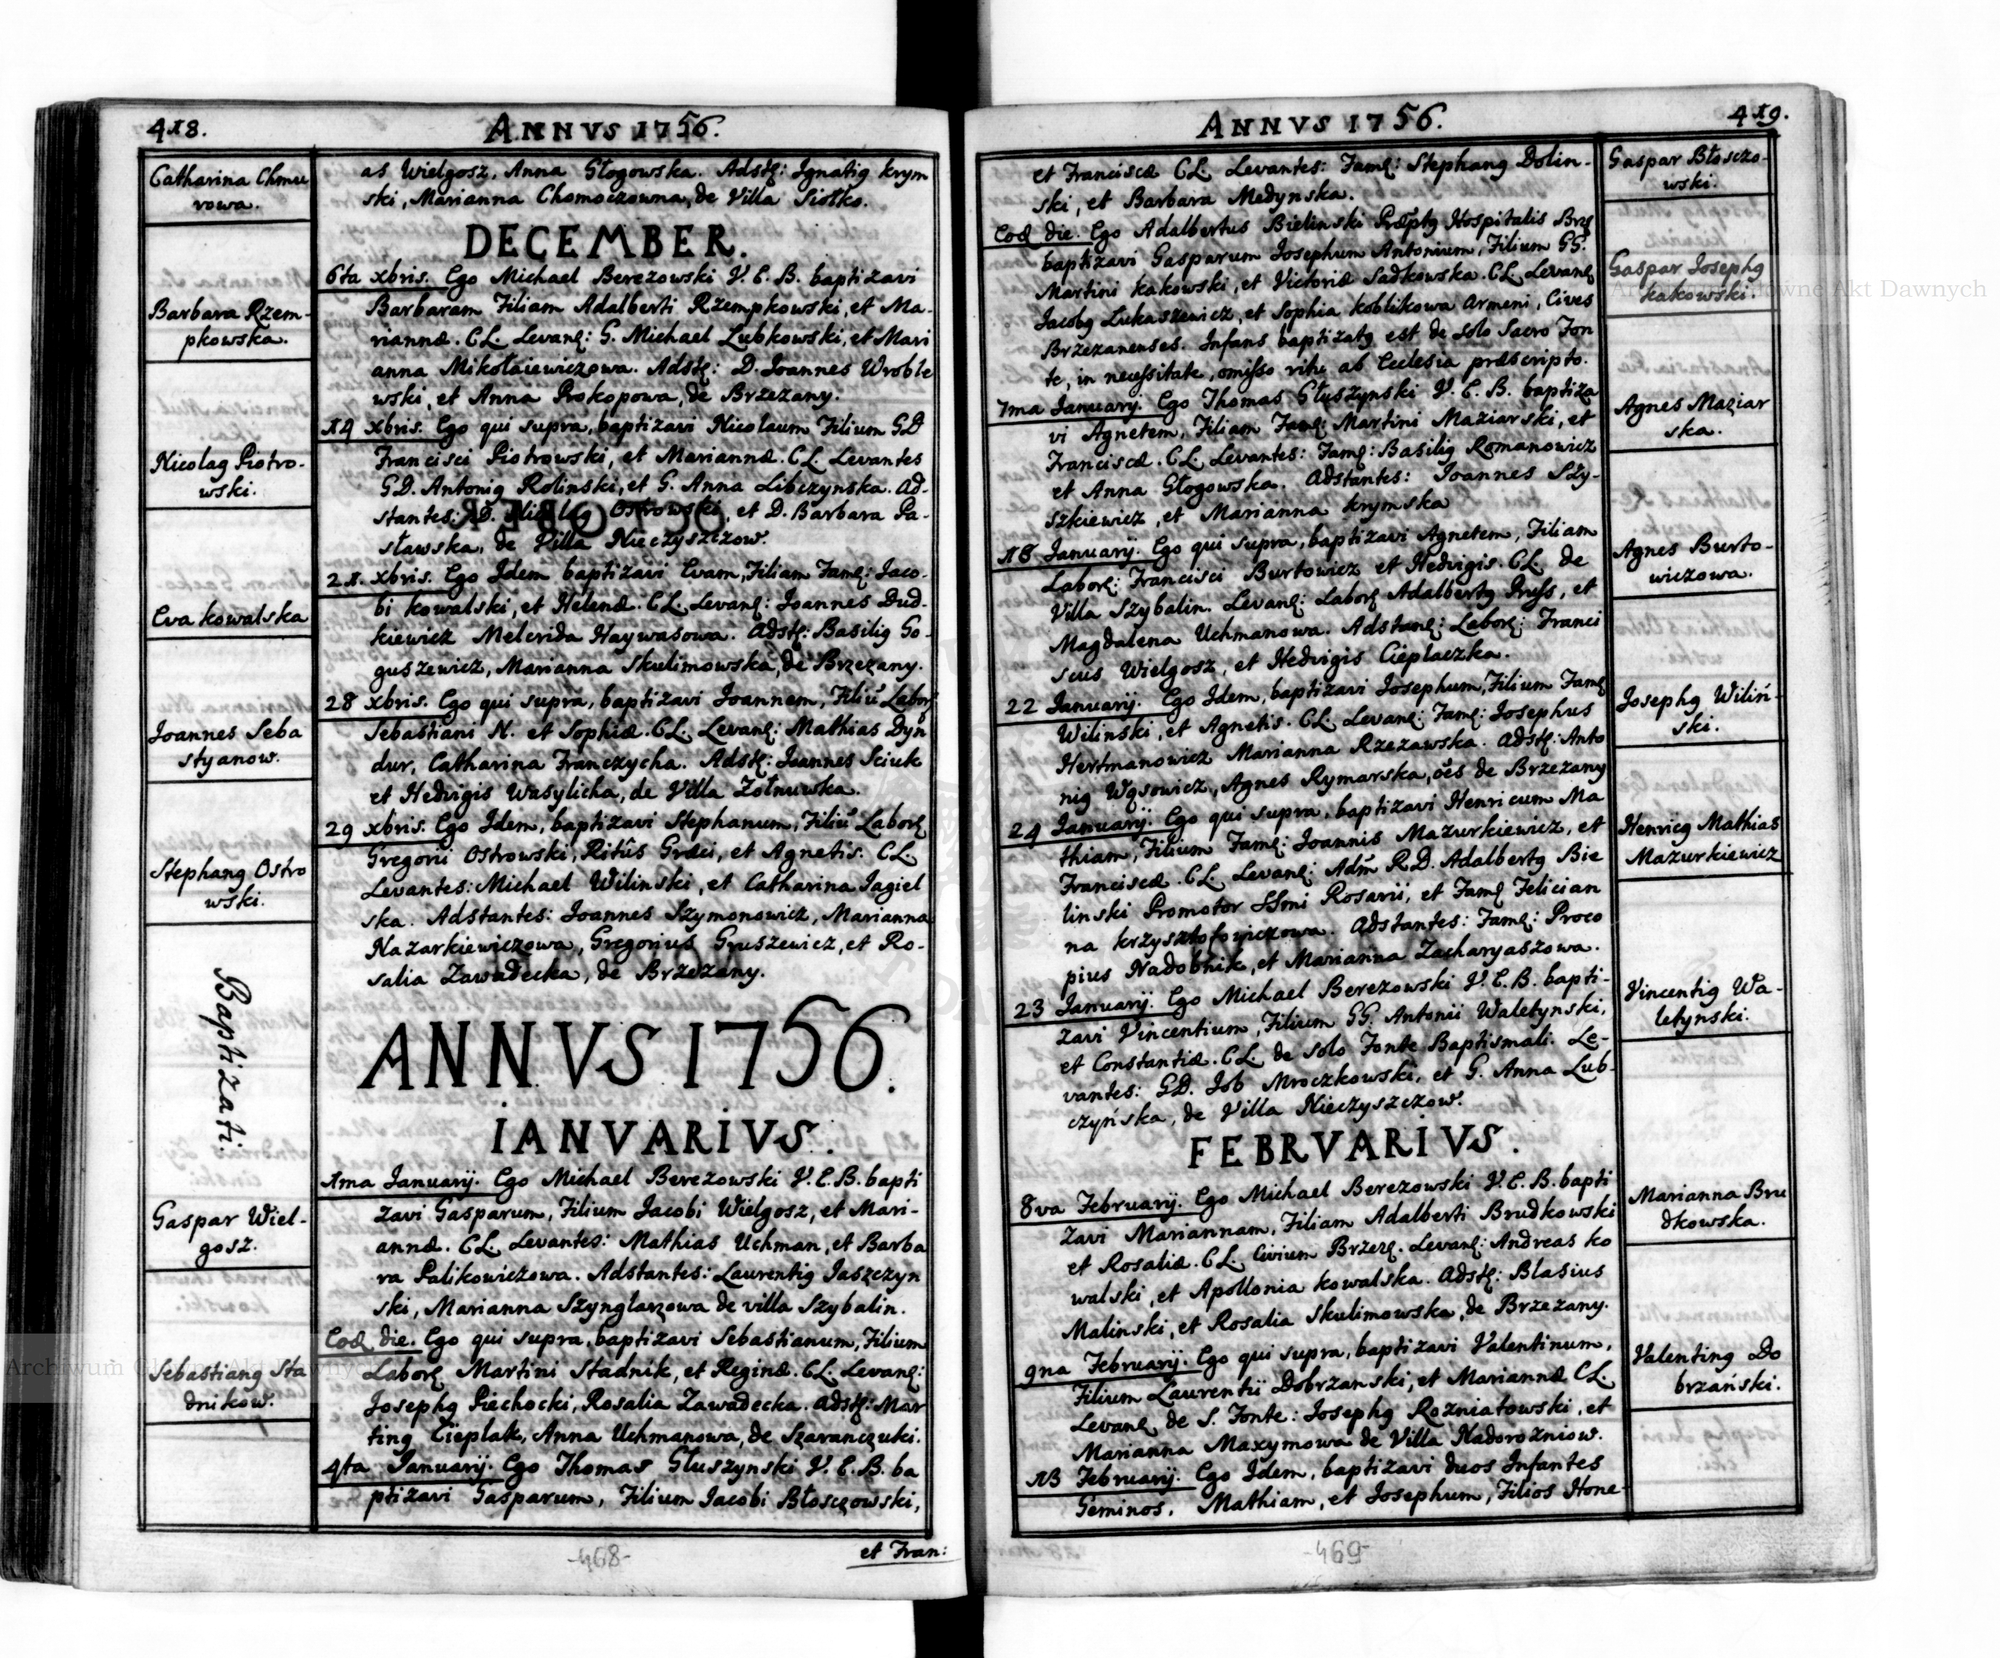 418.
ANNVS 1756.
Catharina Chmu
rowa.
as Wielgosz, Anna Głogowska. Adstę: Ignatig krym
ski, Marianna Chomoczowna, de Villa
DECEMBER.
Barbara Rzem-
pkowska.
6ta xbris. Ego Michael Berezowski V. E. B. baptizavi
Barbaram Filiam Adalberti Rzempkowski, et Ma-
riannæ. CL. Levanę: G. Michael Lubkowski, et Mari
anna Mikołaiewiczowa. Adstę: D. Ioannes Wroble
wski, et Anna Prokopowa, de Brzezany.
Nicolag Piotro-
wski.
19 xbris. Ego qui supra, baptizavi Nicolaum Filium GD
Francisci Piotrowski, et Mariannæ. CL Levantes
GD. Antonig Rolinski, et G. Anna Libczynska. Ad-
stantes: D. Ostrowski, et D. Barbara Pa-
stawska, de Villa Nieczyszczow.
Eva kowalska
21. xbris. Ego Idem baptizavi Evam, Filiam Famę: Iaco-
bi kowalski, et Helenæ. CL. Levanę: Ioannes Dud-
kiewicz Melcrida Haywasowa. Adstę: Basilig Go-
guszewicz, Marianna Skulimowska, de Brzezany.
Ioannes Seba
styanow.
28 xbris. Ego qui supra, baptizavi Ioannem, Filiū Laborę
Sebastiani N. et Sophiæ. CL. Levanę: Mathias Dyn
dur, Catharina Franczycha. Adstę: Ioannes Sciuk
et Hedvigis Wasylicha, de Villa Zołnuwska.
Stephang Ostro
wski.
29 xbris. Ego Idem, baptizavi Stephanum, Filiū Laborę
Gregorii Ostrowski, Ritûs Græci, et Agnetis. CL.
Levantes: Michael Wilinski, et Catharina Iagiel
ska. Adstantes: Ioannes Szymonowicz, Marianna
Nazarkiewiczowa, Gregorius Gruszewicz, et Ro-
salia Zawadecka, de Brzezany.
Baptizati.
ANNVS 1756.
IANVARIVS.
Gaspar Wiel-
gosz.
1ma Ianuarij. Ego Michael Berezowski V. E. B. bapti
zavi Gasparum, Filium Iacobi Wielgosz, et Mari-
annæ. CL. Levantes: Mathias Uchman, et Barba
ra Palikowiczowa. Adstantes: Laurentig Iaszczyn
ski, Marianna Szynglarzowa de villa Szybalin.
Sebastiang Sta
dnikow.
Eoꝺ die. Ego qui supra, baptizavi Sebastianum, Filium
Laborę Martini Stadnik, et Reginæ. CL. Levanę:
Iosephg Piechocki, Rosalia Zawadecka. Adstę: Mar
ting Cieplak, Anna Uchmanowa, de Szaranczuki.
4ta Ianuarij. Ego Thomas Głuszynski V. E. B. ba
ptizavi Gasparum, Filium Iacobi Błosczowski,
et Fran:
-468-
ANNVS 1756.
419.
Gaspar Błosczo-
wski.
et Franciscæ CL Levantes: Famę: Stephang Dolin-
ski, et Barbara Medynska.
Gaspar Iosephg
kakowski.
Eoꝺ die. Ego Adalbertus Bielinski Præptg Hospitalis Brzę
baptizavi Gasparum Iosephum Antonium, Filium GG.
Martini kakowski, et Victoriæ Sadkowska. CL. Levanę
Iacobg Lukaszewicz, et Sophia koblikowa Armeni, Cives
Brzezanenses. Infans baptizatg est de solo Sacro Fon
te, in necessitate, omisso ritu ab Ecclesia præscripto.
Agnes Maziar
ska.
7ma Ianuarij. Ego Thomas Głuszynski V. E. B. baptiza
vi Agnetem, Filiam Famę: Martini Maziarski, et
Franciscæ. CL. Levantes: Famę: Basilig Romanowicz
et Anna Głogowska. Adstantes: Ioannes Szy-
szkiewicz, et Marianna krymska
Agnes Burto-
wiczowa.
18 Ianuarij. Ego qui supra, baptizavi Agnetem, Filiam
Laborę: Francisci Burtowicz et Hedvigis CL. de
Villa Szybalin. Levanę: Laborę Adalbertg Pruss, et
Magdalena Uchmanowa. Adstanę: Laborę: Franci
scus Wielgosz, et Hedvigis Cieplaczka.
Iosephg Wiliń-
ski.
22 Ianuarij. Ego Idem, baptizavi Iosephum, Filium Famę
Wilinski, et Agnetis. CL. Levanę: Famę: Iosephus
Hertmanowicz Marianna Rzezawska. Adstę: Anto
nig Wąsowicz, Agnes Rymarska, oēs de Brzezany
Henricg Mathias
Mazurkiewicz
24 Ianuarij. Ego qui supra, baptizavi Henricum Ma
thiam, Filium Famę: Ioannis Mazurkiewicz, et
Franciscæ. CL. Levanę: Adm̄ R. D. Adalbertg Bie
linski Promotor SSmi Rosarii, et Famę Felician
na krzysztofowiczowa. Adstantes: Famę: Proco
pius Nadobnik, et Marianna Zacharyaszowa.
Vincentig Wa-
letynski.
23 Ianuarij. Ego Michael Berezowski V. E. B. bapti-
zavi Vincentium, Filium GG. Antonii Waletynski,
et Constantiæ. CL. de solo Fonte Baptismali. Le-
vantes: GD. Iob Mroczkowski, et G. Anna Lub-
czyńska, de Villa Nieczyszczow.
FEBRVARIVS.
Marianna Bru
dkowska.
8va Februarij. Ego Michael Berezowski V. E. B. bapti
zavi Mariannam, Filiam Adalberti Brudkowski
et Rosaliæ. CL. Civium Brzezę. Levanę: Andreas ko
walski, et Apollonia kowalska. Adstę: Blasius
Malinski, et Rosalia Skulimowska, de Brzezany.
Valenting Do
brzański.
9na Februarij. Ego qui supra, baptizavi Valentinum,
Filium Laurentii Dobrzanski, et Mariannæ CL.
Levanę de S. Fonte: Iosephg Rozniatowski, et
Marianna Maxymowa de Villa Nadorozniow.
13 Februarij. Ego Idem, baptizavi duos Infantes
Geminos, Mathiam, et Iosephum, Filios Hone-
-469-
Archiwum Główne Akt Dawnych
Archiwum Główne Akt Dawnych